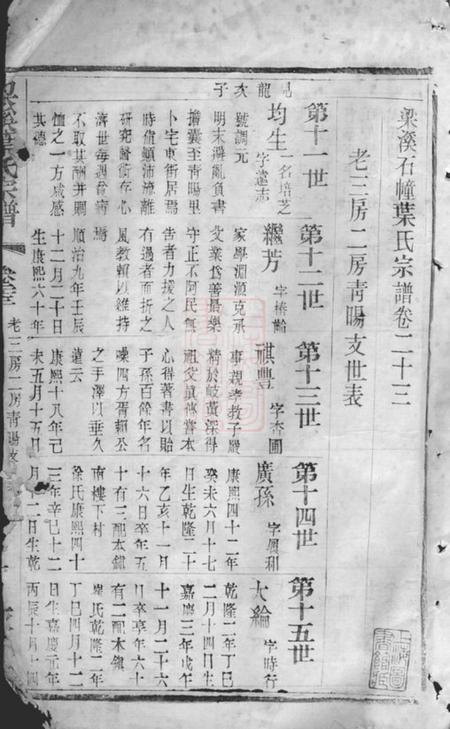 梁溪石幢葉氏宗譜卷二十三
老三房二房青暘支世表
第十一世 第十二世 第十三世 第十四世 第十五世
見龍次子
均生 一名培芝 字蘧志
號調元
明末避亂負書
攜囊至青暘里
卜宅東街居焉
時值顛沛流離
研究醫術存心
濟世每遇貧病
不取其酬并賙
恤之一方咸感
其德
繼芳 字椿齡
家學淵源克承
文業爲善最樂
守正不阿民無
告者力援之人
有過者面折之
風教賴以維持
焉
順治九年壬辰
十二月二十日
生康熙六十年
祺豐 字杏圃
事親孝教子嚴
精於岐黃深得
祖父眞傳嘗本
心得著書以貽
子孫百餘年名
噪四方胥賴公
之手澤以垂久
遠云
康熙十八年己
未五月十五日
廣孫 字鳳和
康熙四十二年
癸未六月十七
日生乾隆二十
年乙亥十一月
十六日卒年五
十有三配本鎮
南樓下村
徐氏康熙四十
三年辛巳十二
月十二日生乾
大綸 字時行
乾隆二年丁巳
二月十四日生
嘉慶三年戊午
十一月二十六
日卒享年六十
有二配本鎮
氏乾隆二年
丁巳四月十二
日生嘉慶元年
丙辰十月十四
氏宗譜
老三房二房青暘支